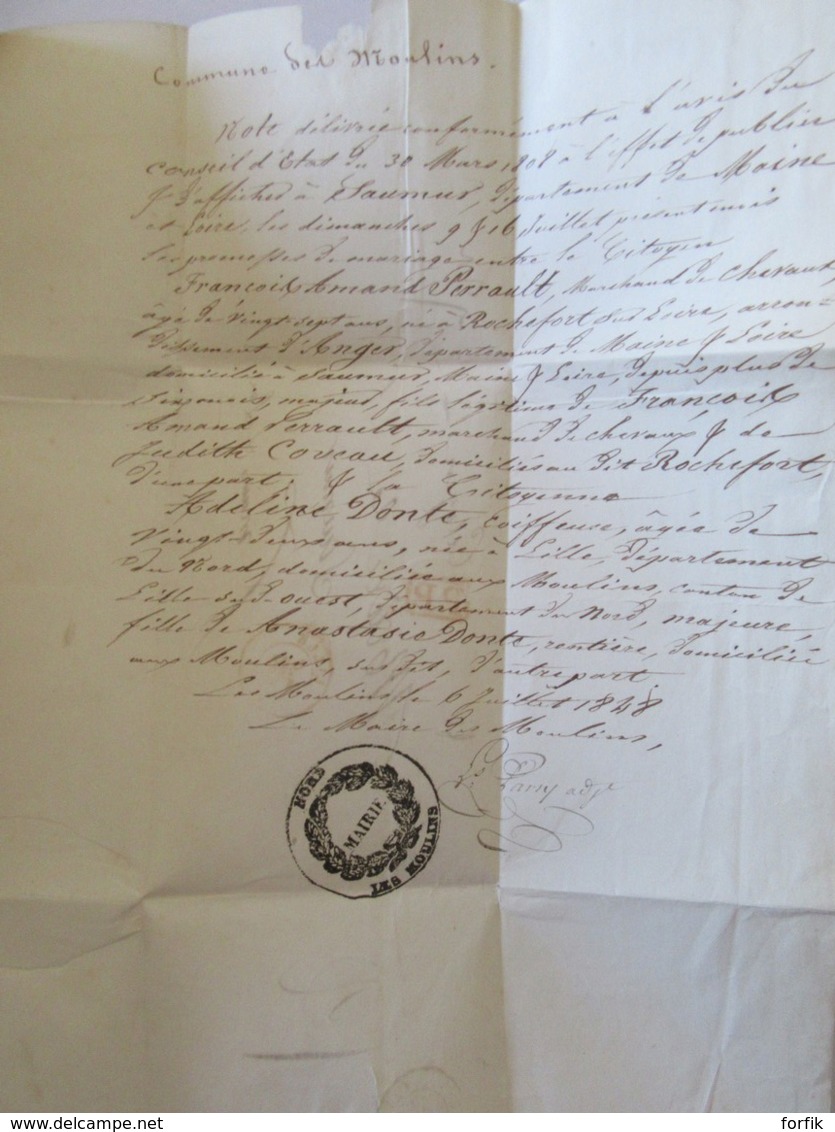 Commune des Moulins.
Note délivrée conformément à l'avis du
Conseil d'Etat du 30 Mars 1808 à l'effet de publier
& d'afficher à Saumur, département de Maine
et Loire, les dimanches 9 & 16 Juillet présent mois
les promesses de mariage entre le Citoyen
François Amand Perrault, Marchand de chevaux,
âgé de vingt-sept ans, né à Rochefort sur Loire, arron-
dissement d'Anger, département de Maine & Loire
domicilié à Saumur, Maine & Loire, depuis plus de
six mois, majeur, fils légitime de François
Amand Perrault, marchand de chevaux & de
Judith Coveau, domiciliés au dit Rochefort,
d'une part; & la Citoyenne
Adeline Donte, coiffeuse, âgée de
Vingt-deux ans, née à Lille, Département
du Nord, domiciliée aux Moulins, canton de
Lille sud-ouest, département du Nord, majeure,
fille de Anastasie Donte, rentière, domiciliée
aux Moulins, sus dit, d'autre part.
Les Moulins le 6 Juillet 1848
Le Maire des Moulins,
adj.
NORD
MAIRIE
LES MOULINS
delcampe.net
forfik